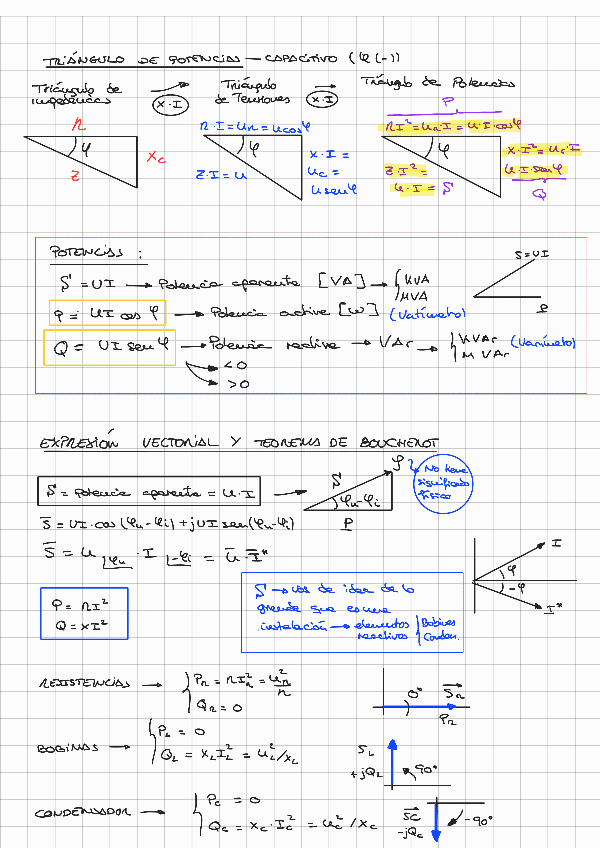 TRIÁNGULO DE POTENCIAS — CAPACITIVO (φ(-))
Triángulo de impedancias → (x·I) Triángulo de Tensiones → (x·I) Triángulo de Potencias
P
R R·I = U_R = U cosφ RI² = U_R·I = U·I·cosφ
φ φ φ
X_C X·I = U_C = U senφ X·I² = U_C·I
Z Z·I = U Z·I² = U·I = S U·I·senφ
Q
POTENCIAS :
S = UI → Potencia aparente [VA] → { KVA MVA
S = UI
P
P = UI cos φ → Potencia activa [W] (Vatímetro)
Q = UI senφ → Potencia reactiva → VAr → { KVAr M VAr (Varímetro)
<0
>0
EXPRESIÓN VECTORIAL Y TEOREMA DE BOUCHEROT
S = Potencia aparente = U·I →
S φu-φi P
No tiene significado físico
S = UI·cos(φu-φi)+jUI sen(φu-φi)
S = U |φu · I |-φi = U · I*
I
φ
-φ
I*
P = RI²
Q = XI²
S → da idea de lo
grande que es una
instalación → elementos reactivos { Bobinas Conden.
RESISTENCIAS → { P_R = RI_R² = U_R²/R
Q_R = 0
0° S_R
P_R
BOBINAS → { P_L = 0
Q_L = X_L I_L² = U_L²/X_L
S_L
+jQ_L 90°
CONDENSADOR → { P_C = 0
Q_C = X_C·I_C² = U_C²/X_C
S_C
-jQ_C -90°